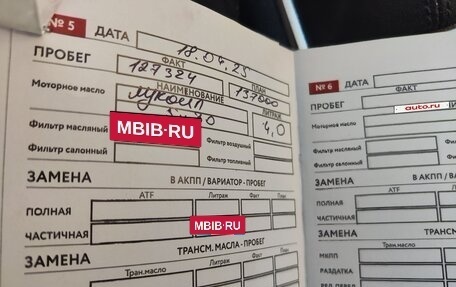 № 5 ДАТА 18.04.25
ПРОБЕГ ФАКТ 127324 ПЛАН 137000
Моторное масло НАИМЕНОВАНИЕ ЛИТРАЖ
Лукойл 4,0
Фильтр масляный MBIB·RU Фильтр воздушный
Фильтр салонный Фильтр топливный
ЗАМЕНА В АКПП / ВАРИАТОР - ПРОБЕГ
ATF Литраж Факт План
ПОЛНАЯ
ЧАСТИЧНАЯ MBIB·RU
ЗАМЕНА ТРАНСМ. МАСЛА - ПРОБЕГ
Тран.масло Литраж Факт План
№ 6 ДАТА
ПРОБЕГ ФАКТ
auto.ru
Моторное масло
Фильтр масляный
Фильтр салонный
ЗАМЕНА В АКПП
ATF
ПОЛНАЯ
ЧАСТИЧНАЯ
ЗАМЕНА ТРАНСМ
МКПП Тран.масло
РАЗДАТКА
РЕД. ПЕРЕД